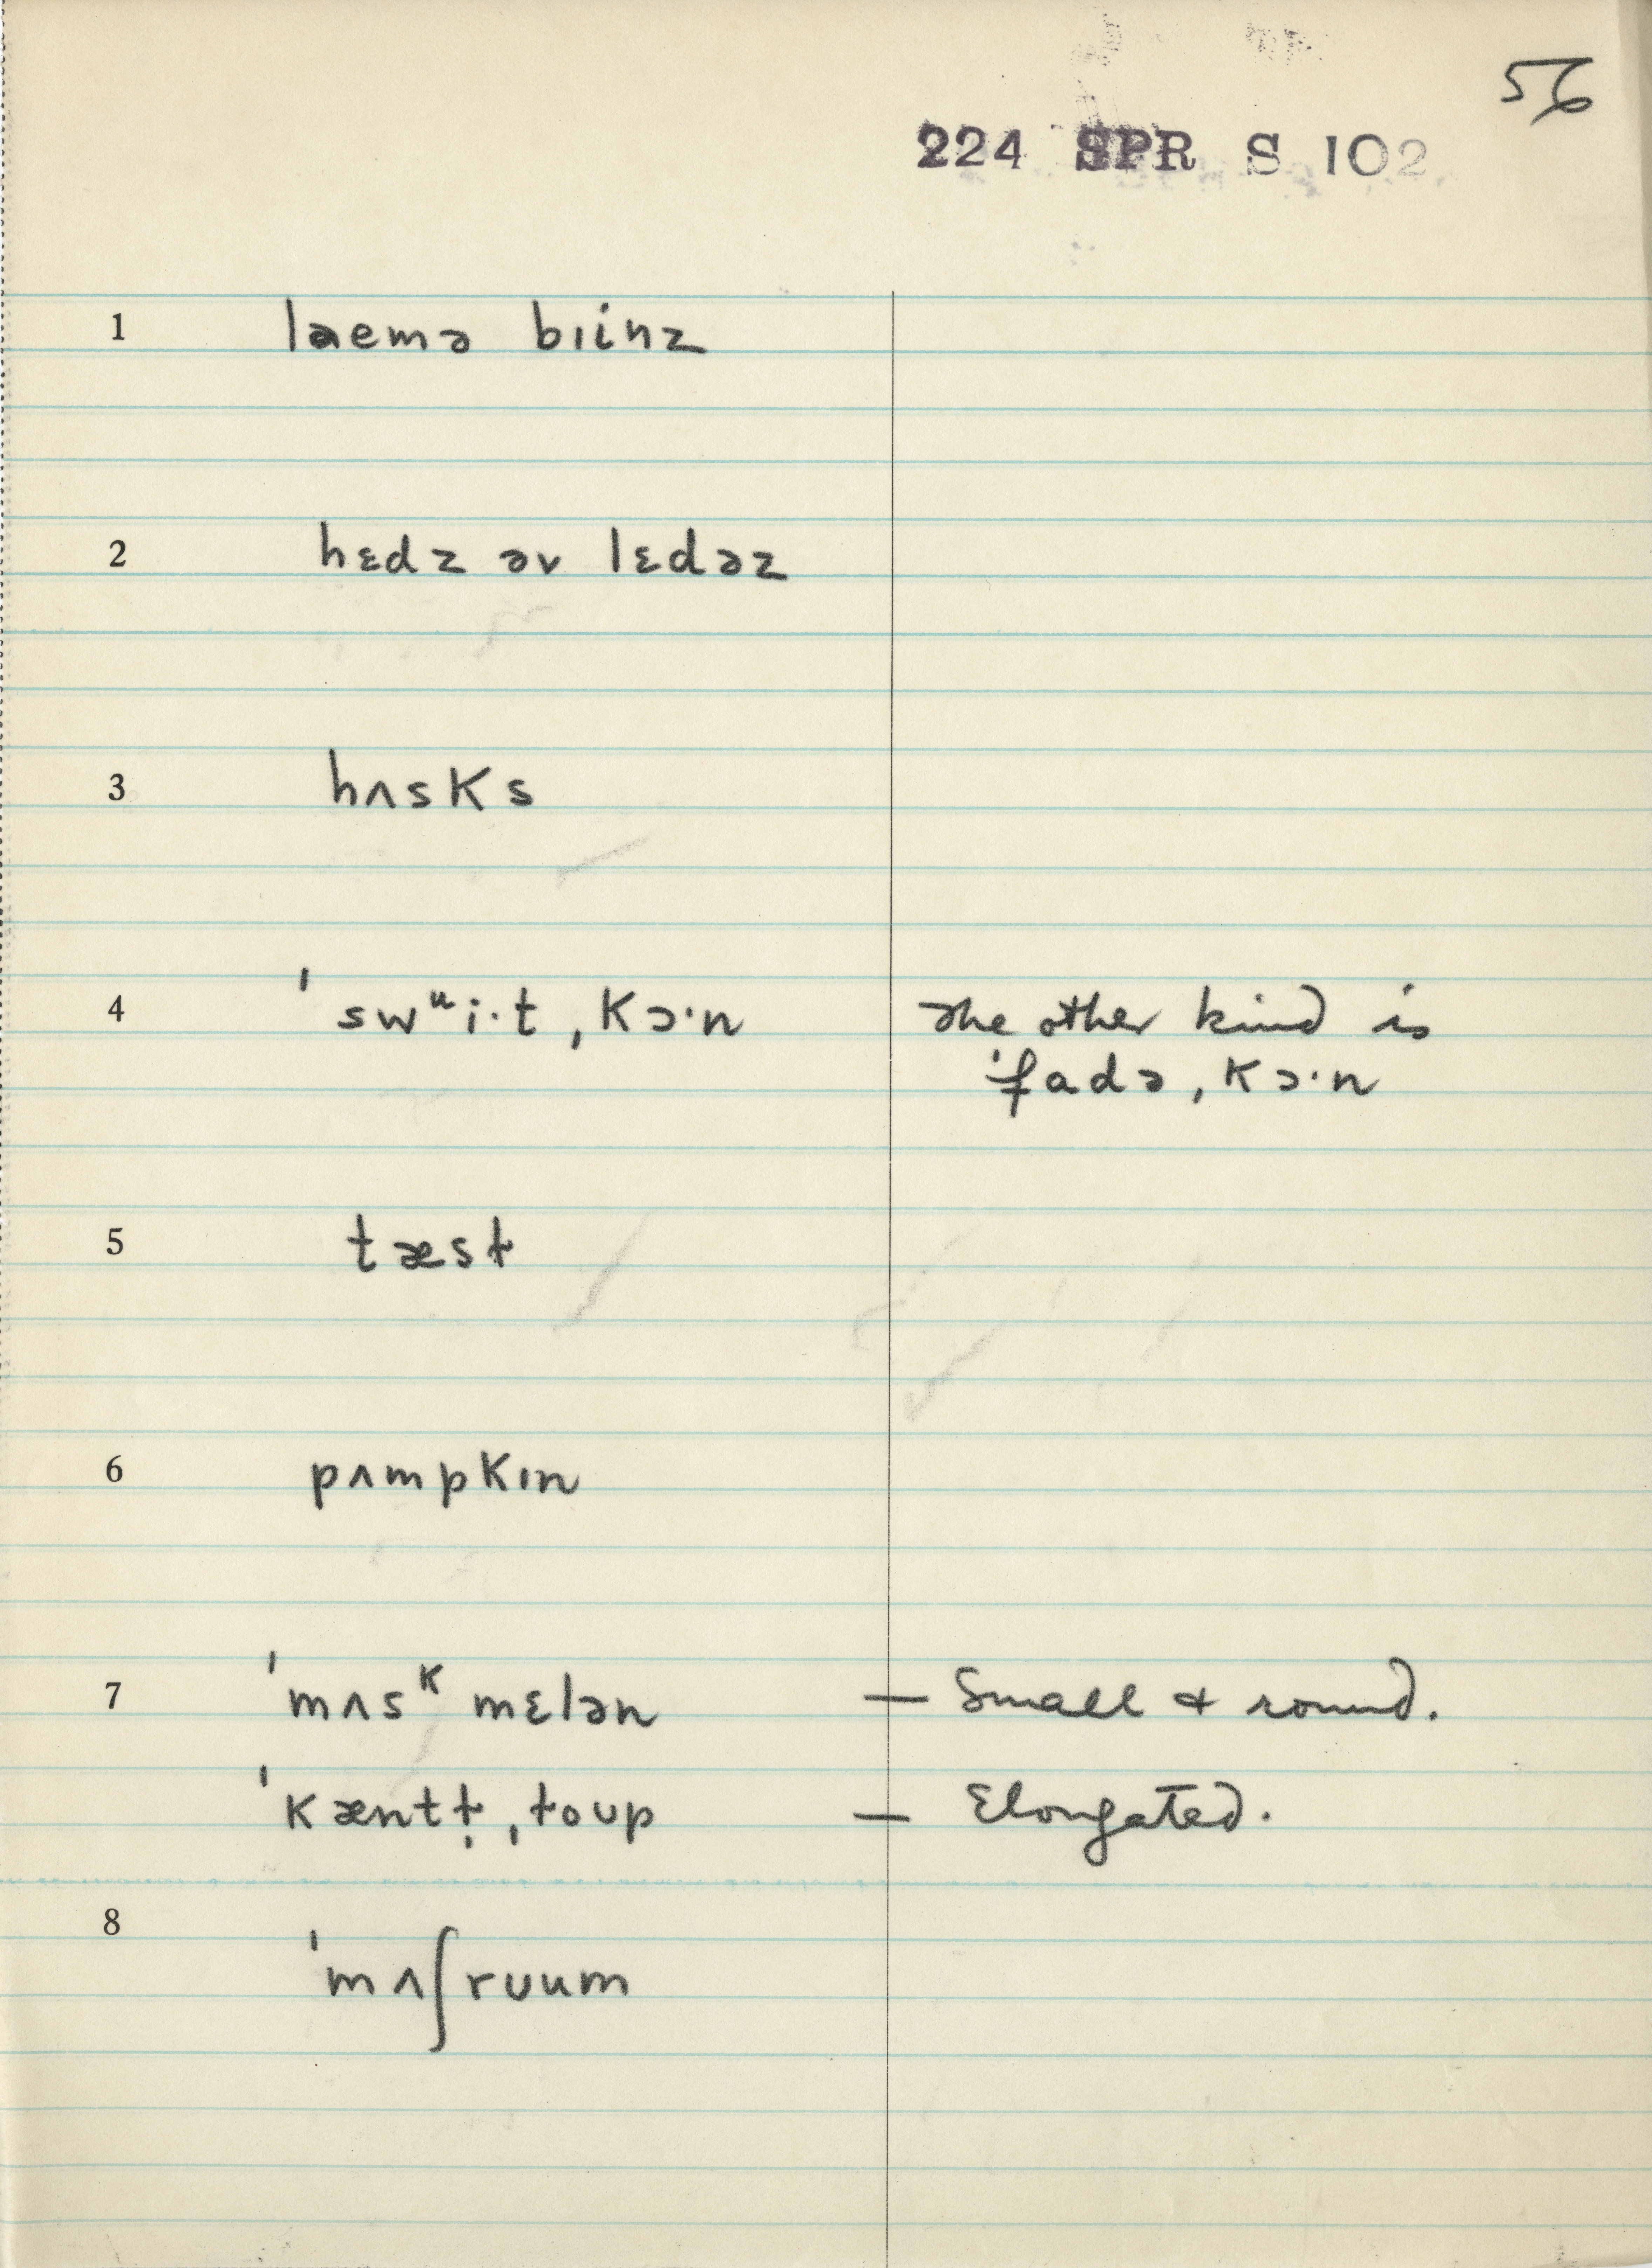 56
224 SPR S 102
1 laemə bɪinz
2 hɛdz əv lɛdəz
3 hʌsks
4 ˈswᵘi·t ˌkɔ·n The other kind is
ˈfadə ˌkɔ·n
5 tæst
6 pʌmpkɪn
7 ˈmʌsᵏmɛlən — Small & round.
ˈkæntt̬ ˌt̬oʊp — Elongated.
8 ˈmʌʃrʊum